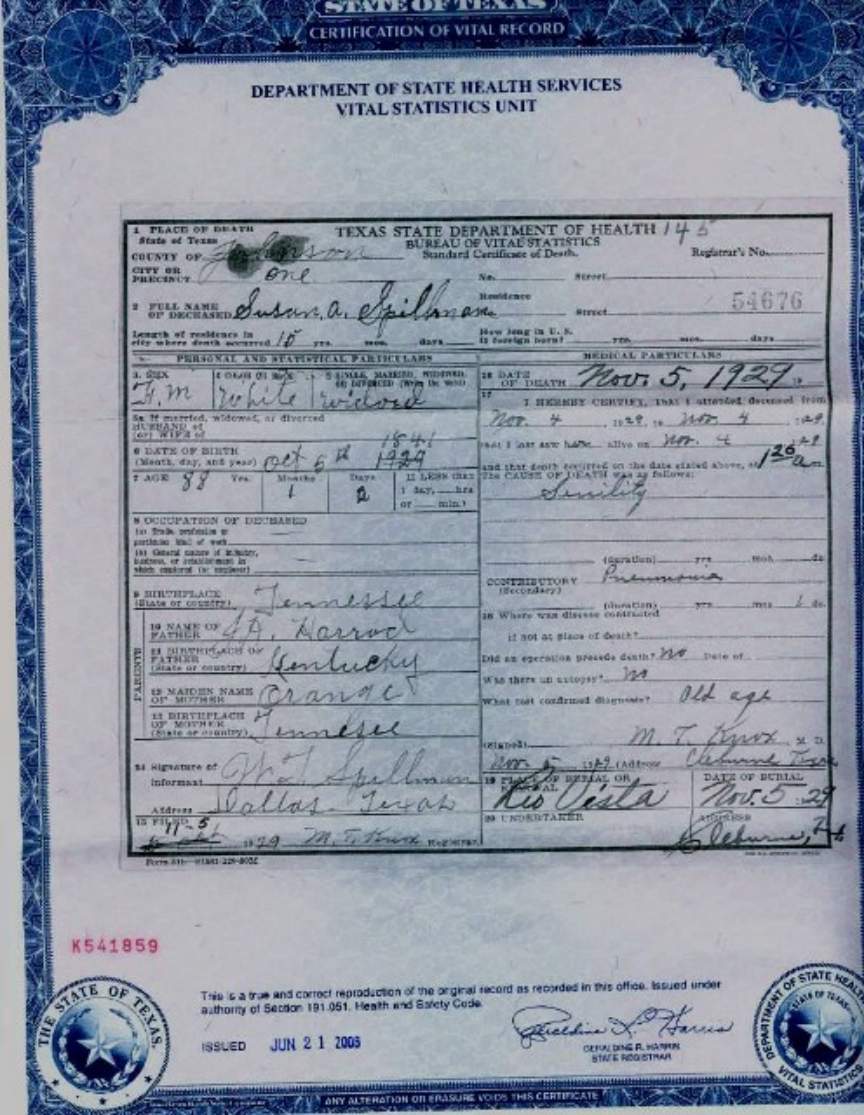 STATE OF TEXAS
CERTIFICATION OF VITAL RECORD
DEPARTMENT OF STATE HEALTH SERVICES
VITAL STATISTICS UNIT
1 PLACE OF DEATH
State of Texas
COUNTY OF Johnson
CITY OR
PRECINCT one
TEXAS STATE DEPARTMENT OF HEALTH 145
BUREAU OF VITAL STATISTICS
Standard Certificate of Death.
Registrar's No.
No. Street
2 FULL NAME
OF DECEASED Susan, A. Spillman
Residence
Street
54676
Length of residence in
city where death occurred 15 yrs. mos. days
How long in U. S.
if foreign born? yrs. mos. days
PERSONAL AND STATISTICAL PARTICULARS
3. SEX
F.M
4 COLOR OR RACE
White
5 SINGLE, MARRIED, WIDOWED,
OR DIVORCED (Write the word)
widowed
5a If married, widowed, or divorced
HUSBAND of
(or) WIFE of
1841
6 DATE OF BIRTH
(Month, day, and year) Oct 5th 1929
7 AGE 88 Yrs. Months 1 Days 2
If LESS than
1 day, hrs
or min.?
8 OCCUPATION OF DECEASED
(a) Trade, profession or
particular kind of work
(b) General nature of industry,
business, or establishment in
which employed (or employer)
9 BIRTHPLACE
(State or country) Tennessee
PARENTS
10 NAME OF
FATHER J.A. Harrod
11 BIRTHPLACE OF
FATHER
(State or country) Kentucky
12 MAIDEN NAME
OF MOTHER Orange
13 BIRTHPLACE
OF MOTHER
(State or country) Tennessee
14 Signature of
Informant W.T. Spillman
Address Dallas Texas
15 FILED 11-5
1929 M. T. Knox Registrar
MEDICAL PARTICULARS
16 DATE
OF DEATH Nov. 5, 1929
17
I HEREBY CERTIFY, That I attended deceased from
Nov. 4 1929, to Nov. 4 1929
that I last saw her alive on Nov. 4 1929
and that death occurred on the date stated above, at 1 20 am
The CAUSE OF DEATH was as follows:
Senility
(duration) yrs. mos. ds
CONTRIBUTORY Pneumonia
(Secondary)
(duration) yrs. mos 1 ds.
18 Where was disease contracted
if not at place of death?
Did an operation precede death? No Date of
Was there an autopsy? No
What test confirmed diagnosis? Old age
(Signed) M. T. Knox M. D.
Nov. 5 1929 (Address Cleburne Texas
19 PLACE OF BURIAL OR
REMOVAL
Rio Vista
DATE OF BURIAL
Nov. 5 29
20 UNDERTAKER
ADDRESS
Cleburne,
K541859
This is a true and correct reproduction of the original record as recorded in this office. Issued under
authority of Section 191.051, Health and Safety Code.
ISSUED JUN 21 2006
Geraldine R. Harris
GERALDINE R. HARRIS
STATE REGISTRAR
THE STATE OF TEXAS.
DEPARTMENT OF STATE HEALTH
STATE OF TEXAS
VITAL STATISTICS
ANY ALTERATION OR ERASURE VOIDS THIS CERTIFICATE